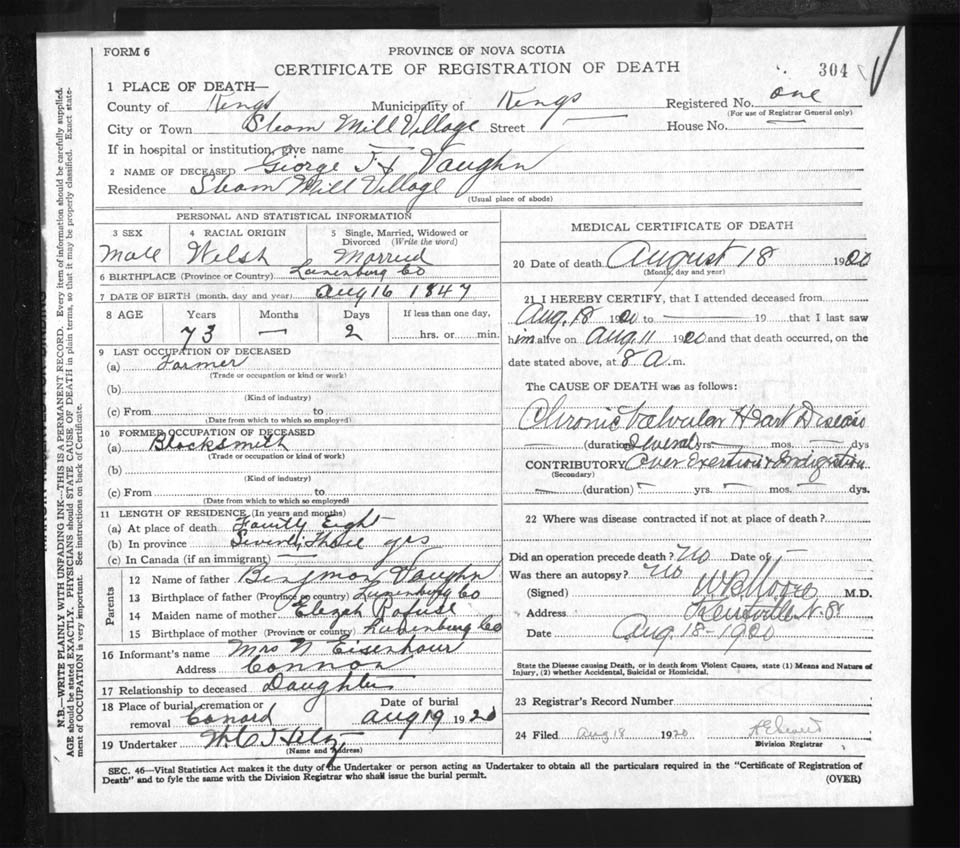 FORM 6
PROVINCE OF NOVA SCOTIA
CERTIFICATE OF REGISTRATION OF DEATH
304
1 PLACE OF DEATH—
County of Kings Municipality of Kings Registered No. one
(For use of Registrar General only)
City or Town Steam Mill Village Street — House No. —
If in hospital or institution, give name —
2 NAME OF DECEASED George Vaughn
Residence Steam Mill Village
(Usual place of abode)
PERSONAL AND STATISTICAL INFORMATION
3 SEX 4 RACIAL ORIGIN 5 Single, Married, Widowed or Divorced (Write the word)
Male Welsh Married
6 BIRTHPLACE (Province or Country) Lunenburg Co
7 DATE OF BIRTH (month, day and year) Aug 16 1847
8 AGE Years Months Days If less than one day,
73 — 2 hrs. or min.
9 LAST OCCUPATION OF DECEASED
(a) Farmer
(Trade or occupation or kind or work)
(b)
(Kind of industry)
(c) From to
(Date from which to which so employed)
10 FORMER OCCUPATION OF DECEASED
(a) Blacksmith
(Trade or occupation or kind of work)
(b)
(Kind of industry)
(c) From to
(Date from which to which so employed)
11 LENGTH OF RESIDENCE (In years and months)
(a) At place of death Fourty Eight
(b) In province Seventy Three yrs
(c) In Canada (if an immigrant) —
Parents
12 Name of father Benjman Vaughn
13 Birthplace of father (Province or country) Lunenburg Co
14 Maiden name of mother Elizah Rafuse
15 Birthplace of mother (Province or country) Lunenburg Co
16 Informant's name Mrs N Eisenhaur
Address
17 Relationship to deceased Daughter
18 Place of burial, cremation or removal Date of burial
Aug 19 1920
19 Undertaker
(Name and Address)
MEDICAL CERTIFICATE OF DEATH
20 Date of death August 18 1920
(Month, day and year)
21 I HEREBY CERTIFY, that I attended deceased from
Aug. 18 1920 to — 19 that I last saw
him alive on Aug. 11 1920 and that death occurred, on the
date stated above, at 8 a. m.
The CAUSE OF DEATH was as follows:
Chronic Valvular Heart Disease
(duration) Several yrs. — mos. — dys
CONTRIBUTORY Over Exertion & Indigestion
(Secondary)
— (duration) — yrs. — mos. — dys.
22 Where was disease contracted if not at place of death?
Did an operation precede death? No Date of —
Was there an autopsy? No
(Signed) M.D.
Address Kentville N.S.
Date Aug. 18-1920
State the Disease causing Death, or in death from Violent Causes, state (1) Means and Nature of
Injury, (2) whether Accidental, Suicidal or Homicidal.
23 Registrar's Record Number
24 Filed Aug 18 1920
Division Registrar
SEC. 46—Vital Statistics Act makes it the duty of the Undertaker or person acting as Undertaker to obtain all the particulars required in the "Certificate of Registration of
Death" and to fyle the same with the Division Registrar who shall issue the burial permit.
(OVER)
N.B.—WRITE PLAINLY WITH UNFADING INK—THIS IS A PERMANENT RECORD. Every item of information should be carefully supplied.
AGE should be stated EXACTLY. PHYSICIANS should STATE CAUSE OF DEATH in plain terms, so that it may be properly classified. Exact state-
ment of OCCUPATION is very important. See instructions on back of Certificate.